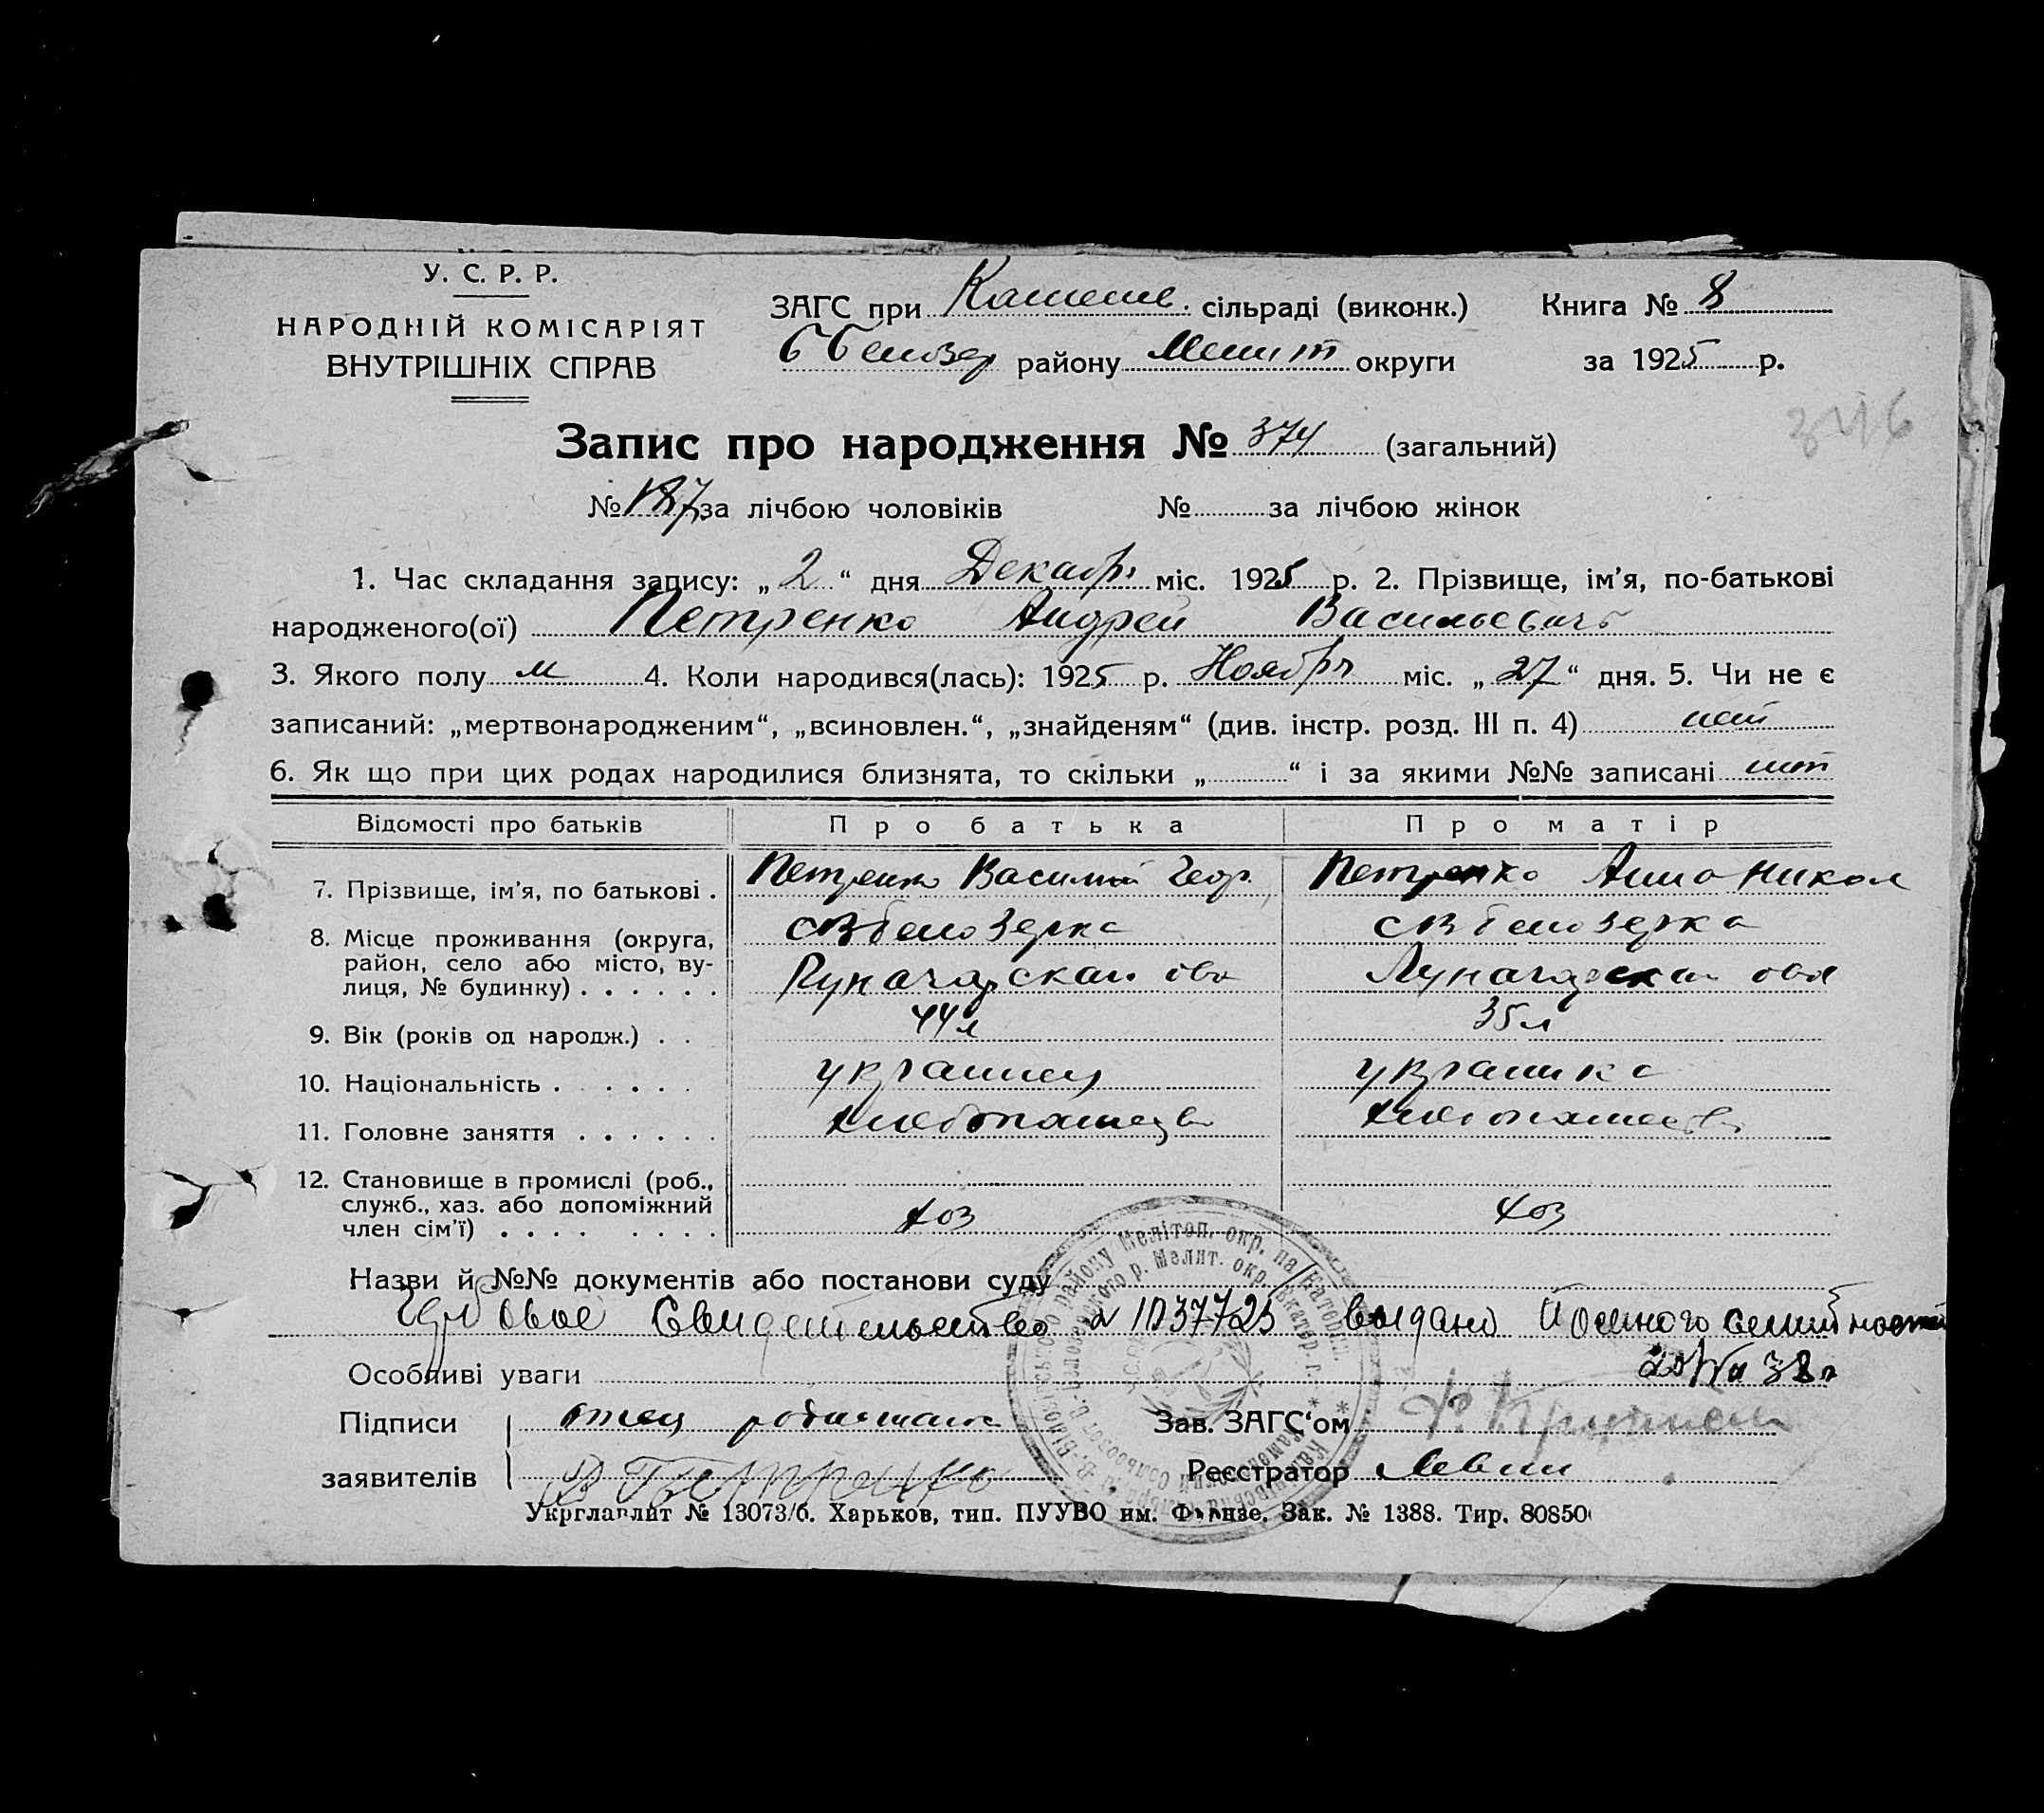 У. С. Р. Р.
НАРОДНІЙ КОМІСАРІЯТ
ВНУТРІШНІХ СПРАВ
ЗАГС при Каменс. сільраді (виконк.)
Книга № 8
ББелозер району Мелит округи
за 1925 р.
346
Запис про народження № 374 (загальний)
№ 187 за лічбою чоловіків № за лічбою жінок
1. Час складання запису: „ 2 “ дня Декабр. міс. 1925 р. 2. Прізвище, ім’я, по-батькові
народженого(ої) Петренко Андрей Васильевичъ
3. Якого полу м 4. Коли народився(лась): 1925 р. Ноябрь міс. „ 27 “ дня. 5. Чи не є
записаний: „мертвонародженим“, „всиновлен.“, „знайденям“ (див. інстр. розд. III п. 4) нет
6. Як що при цих родах народилися близнята, то скільки „ “ і за якими №№ записані нет
Відомості про батьків Про батька Про матір
7. Прізвище, ім’я, по батькові . Петренко Василий Геор. Петренко Анна Никол
8. Місце проживання (округа, район, село або місто, вулиця, № будинку) . . . . . .
с В белозерка с В белозерка
Луначарская Луначарская
9. Вік (років од народж.) . . 44 л 35 л
10. Національність . . . . . . украинец украинка
11. Головне заняття . . . . . .
12. Становище в промислі (роб.,
служб., хаз. або допоміжний
член сім’ї) . . . . . . . . хоз хоз
Назви й №№ документів або постанови суду
Гербовое Свидетельство № 1037725 выдано
Особливі уваги
Підписи отец Зав. ЗАГС‘ом
заявителів В Петренко Реєстратор Левин
Укрглавліт № 13073/б. Харьков, тип. ПУУВО им. Фрунзе. Зак. № 1388. Тир. 80850